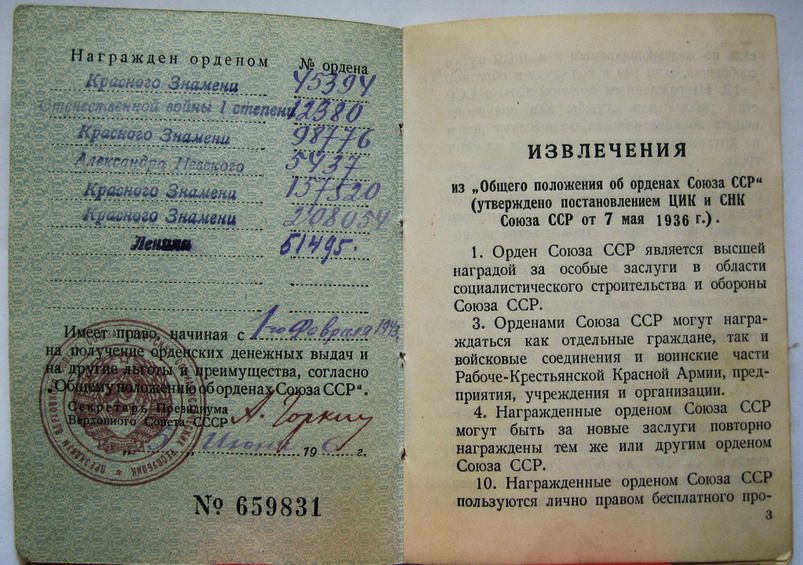 Награжден орденом № ордена
Красного Знамени 45394
Отечественной войны I степени 12380
Красного Знамени 98776
Александра Невского 5437
Красного Знамени 157520
Красного Знамени 208054
Ленина 51495.
Имеет право, начиная с 1го Февраля 1943г.
на получение орденских денежных выдач и
на другие льготы и преимущества, согласно
„Общему положению об орденах Союза ССР“.
Секретарь Президиума
Верховного Совета СССР А. Горкин
Июня 19 г.
№ 659831
ИЗВЛЕЧЕНИЯ
из „Общего положения об орденах Союза ССР“
(утверждено постановлением ЦИК и СНК
Союза ССР от 7 мая 1936 г.).
1. Орден Союза ССР является высшей
наградой за особые заслуги в области
социалистического строительства и обороны
Союза ССР.
3. Орденами Союза ССР могут награ-
ждаться как отдельные граждане, так и
войсковые соединения и воинские части
Рабоче-Крестьянской Красной Армии, пред-
приятия, учреждения и организации.
4. Награжденные орденом Союза ССР
могут быть за новые заслуги повторно
награждены тем же или другим орденом
Союза ССР.
10. Награжденные орденом Союза ССР
пользуются лично правом бесплатного про-
3